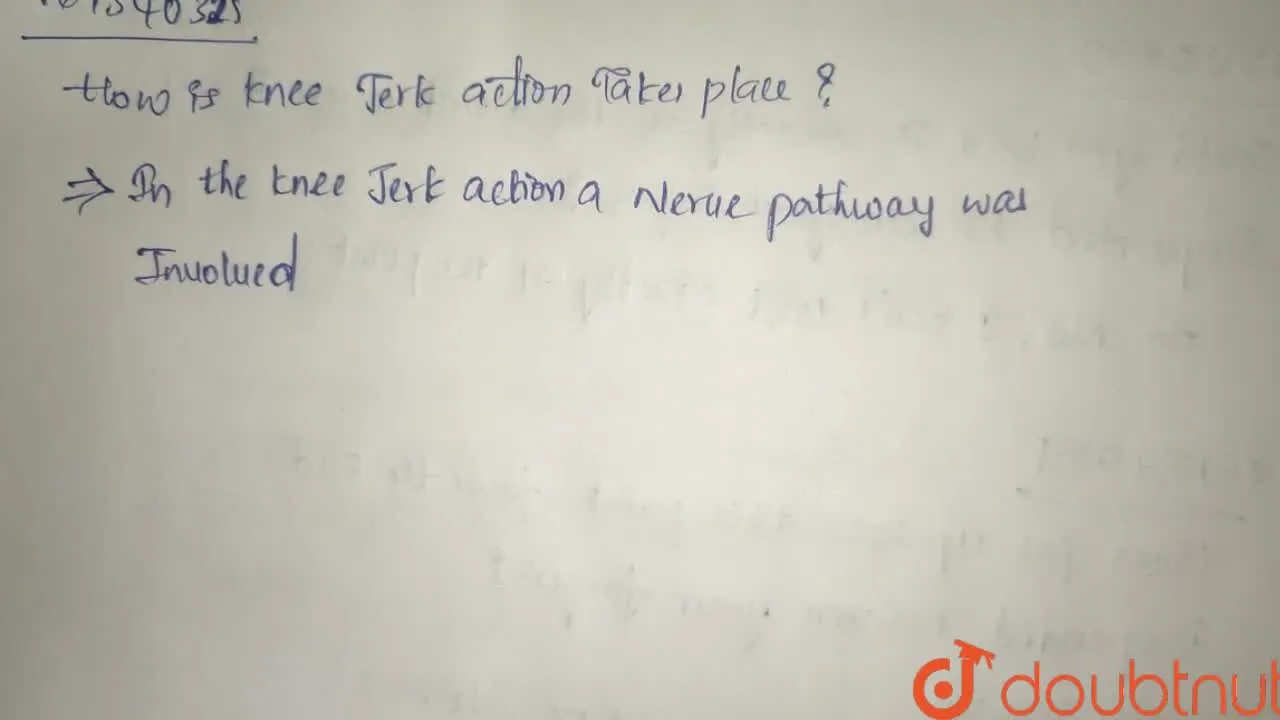 How is knee Jerk action Takes place ?
⇒ In the knee Jerk action a Nerve pathway was
Involved
doubtnut